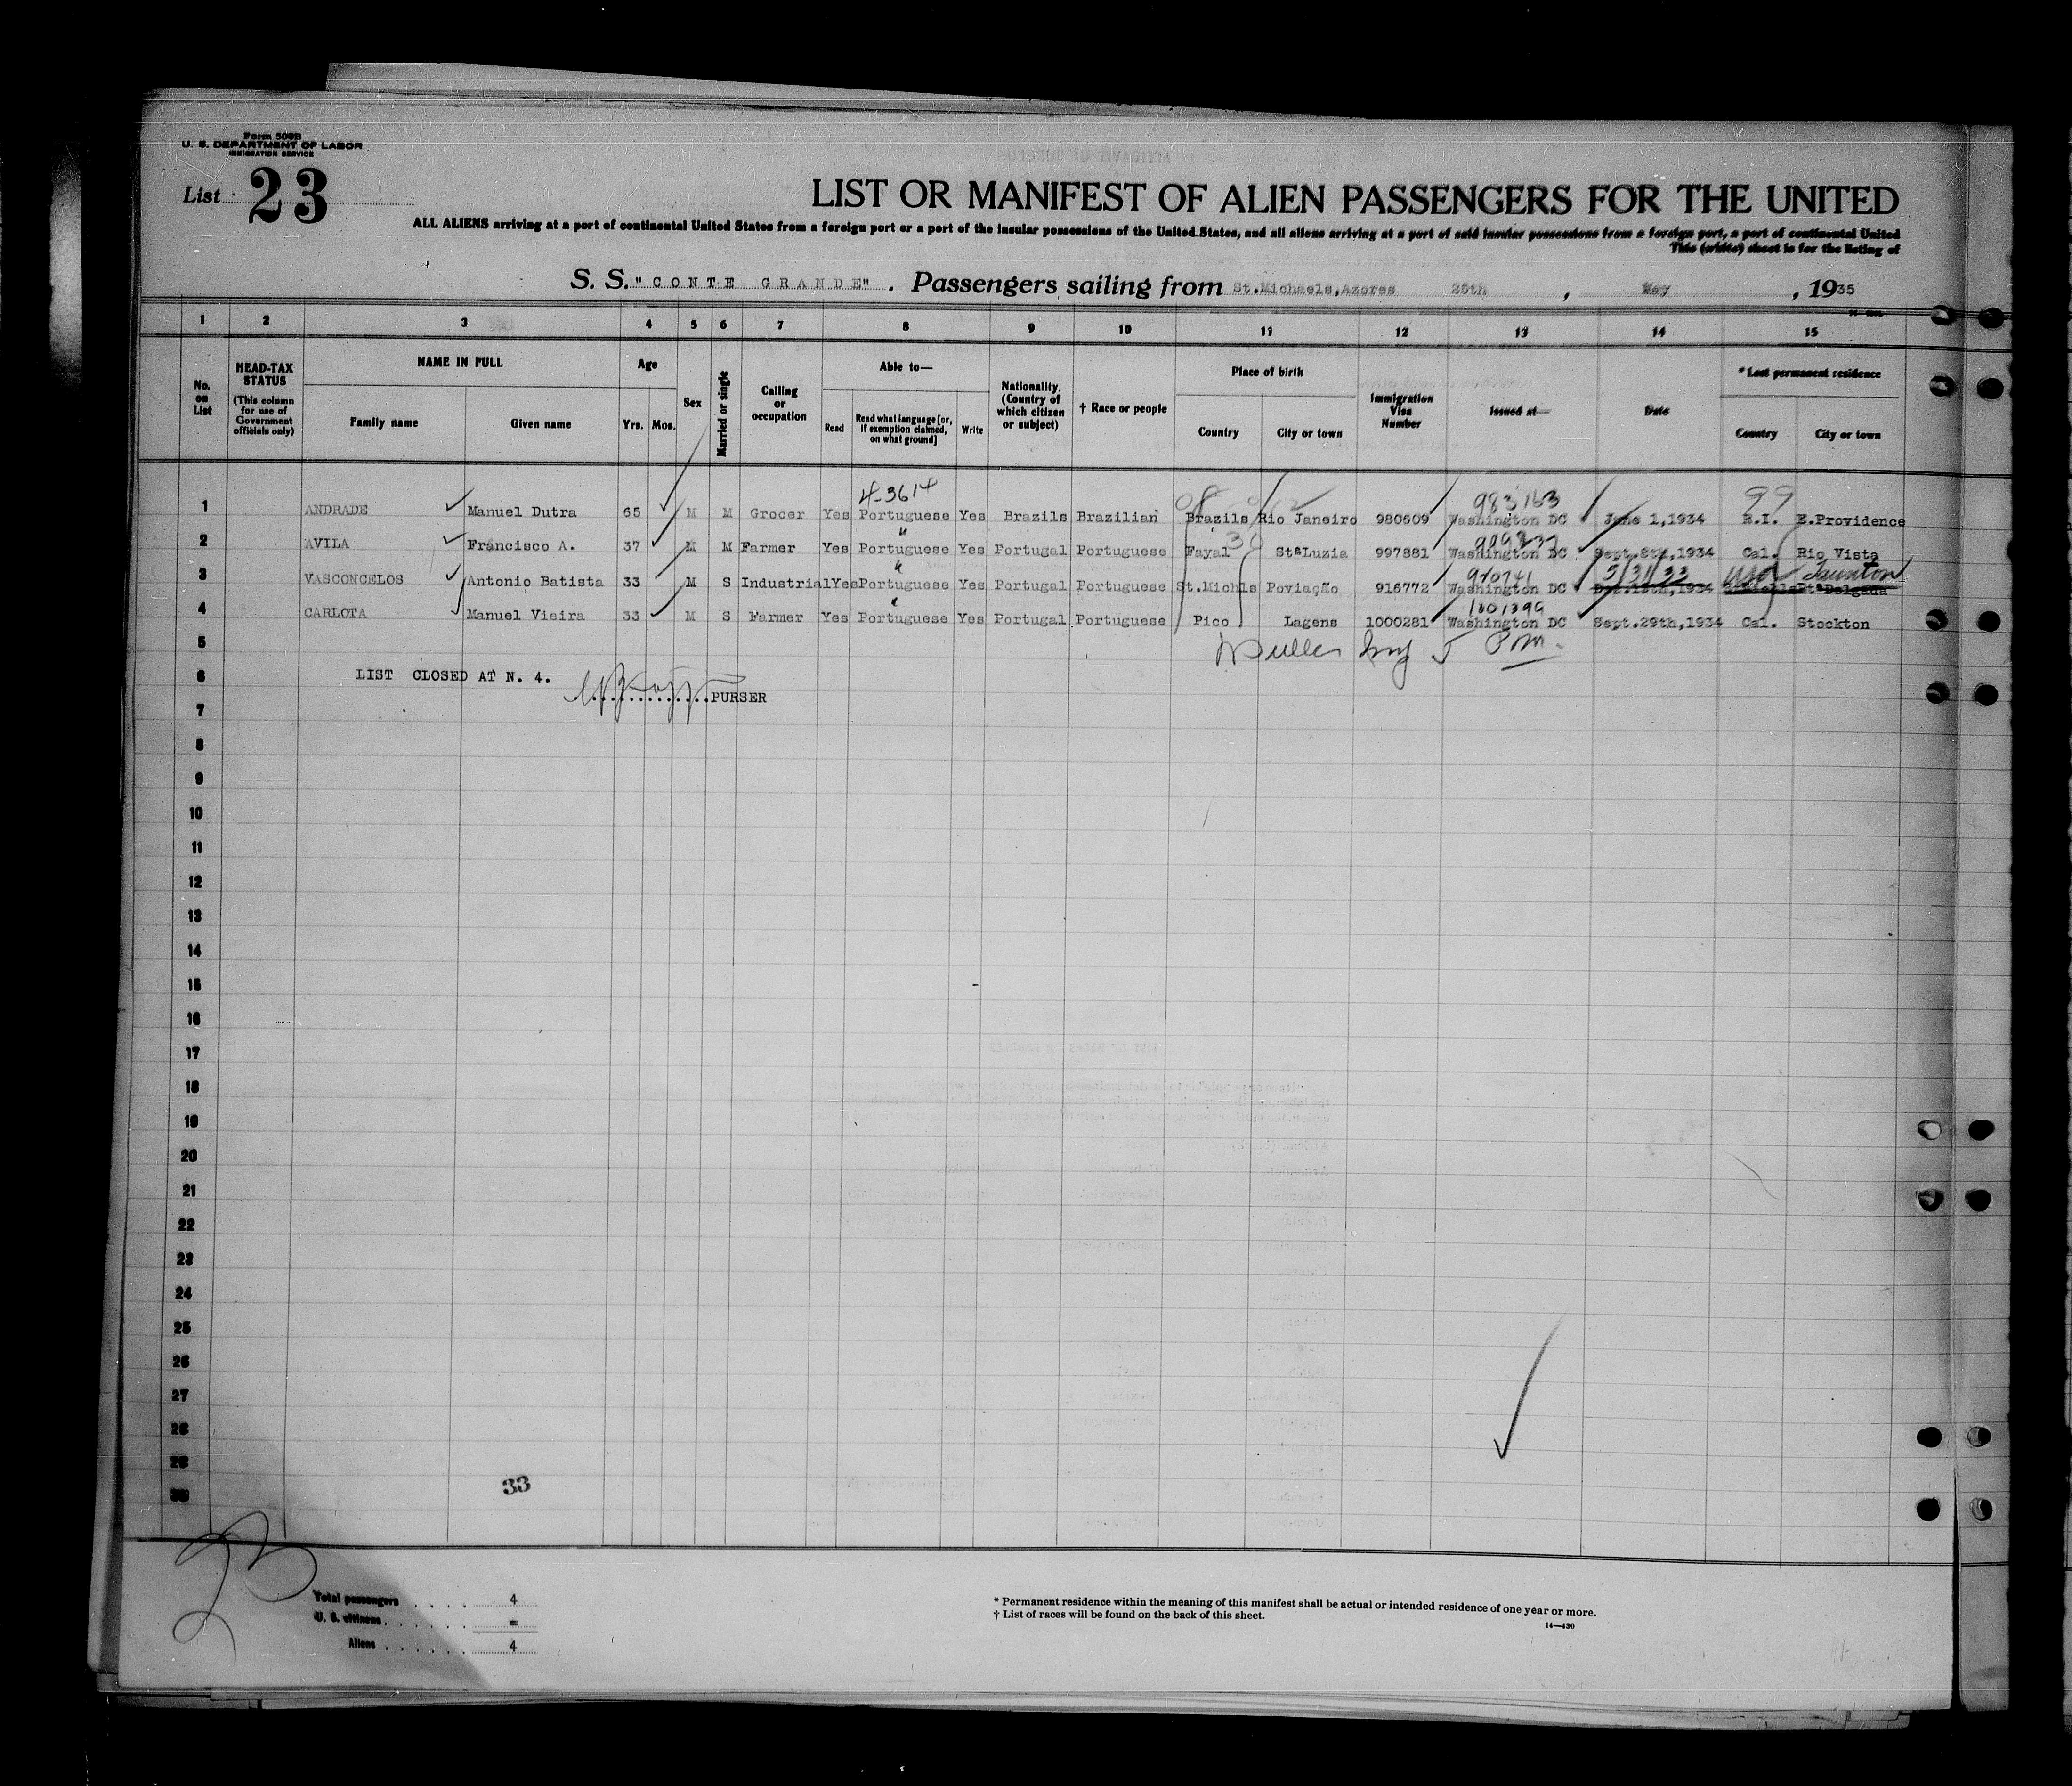 Form 500B
U. S. DEPARTMENT OF LABOR
IMMIGRATION SERVICE
List 23
LIST OR MANIFEST OF ALIEN PASSENGERS FOR THE UNITED
ALL ALIENS arriving at a port of continental United States from a foreign port or a port of the insular possessions of the United States, and all aliens arriving at a port of said insular possessions from a foreign port, a port of continental United
This (white) sheet is for the listing of
S. S. "CONTE GRANDE" . Passengers sailing from St.Michaels,Azores 25th , May , 1935
1 2 3 4 5 6 7 8 9 10 11 12 13 14 15
No. on List
HEAD-TAX STATUS (This column for use of Government officials only)
NAME IN FULL
Family name Given name
Age
Yrs. Mos.
Sex
Married or single
Calling or occupation
Able to—
Read Read what language [or, if exemption claimed, on what ground] Write
Nationality. (Country of which citizen or subject)
† Race or people
Place of birth
Country City or town
Immigration Visa Number
Issued at—
Date
* Last permanent residence
Country City or town
4-3614 983163 99
1 ANDRADE Manuel Dutra 65 M M Grocer Yes Portuguese Yes Brazils Brazilian Brazils Rio Janeiro 980609 Washington DC June 1,1934 R.I. E.Providence
" 30
2 AVILA Francisco A. 37 M M Farmer Yes Portuguese Yes Portugal Portuguese Fayal StªLuzia 997881 Washington DC Sept.8th,1934 Cal. Rio Vista
" 910741 5/31/33 USA Taunton
3 VASCONCELOS Antonio Batista 33 M S Industrial Yes Portuguese Yes Portugal Portuguese St.Michls Poviação 916772 Washington DC
" 1001399
4 CARLOTA Manuel Vieira 33 M S Farmer Yes Portuguese Yes Portugal Portuguese Pico Lagens 1000281 Washington DC Sept.29th,1934 Cal. Stockton
5
6 LIST CLOSED AT N. 4.
..............PURSER
7
8
9
10
11
12
13
14
15
16
17
18
19
20
21
22
23
24
25
26
27
28
29
33
30
23
Total passengers . . . . 4
U. S. citizens . . . . . . =
Aliens . . . . . . 4
* Permanent residence within the meaning of this manifest shall be actual or intended residence of one year or more.
† List of races will be found on the back of this sheet.
14—430